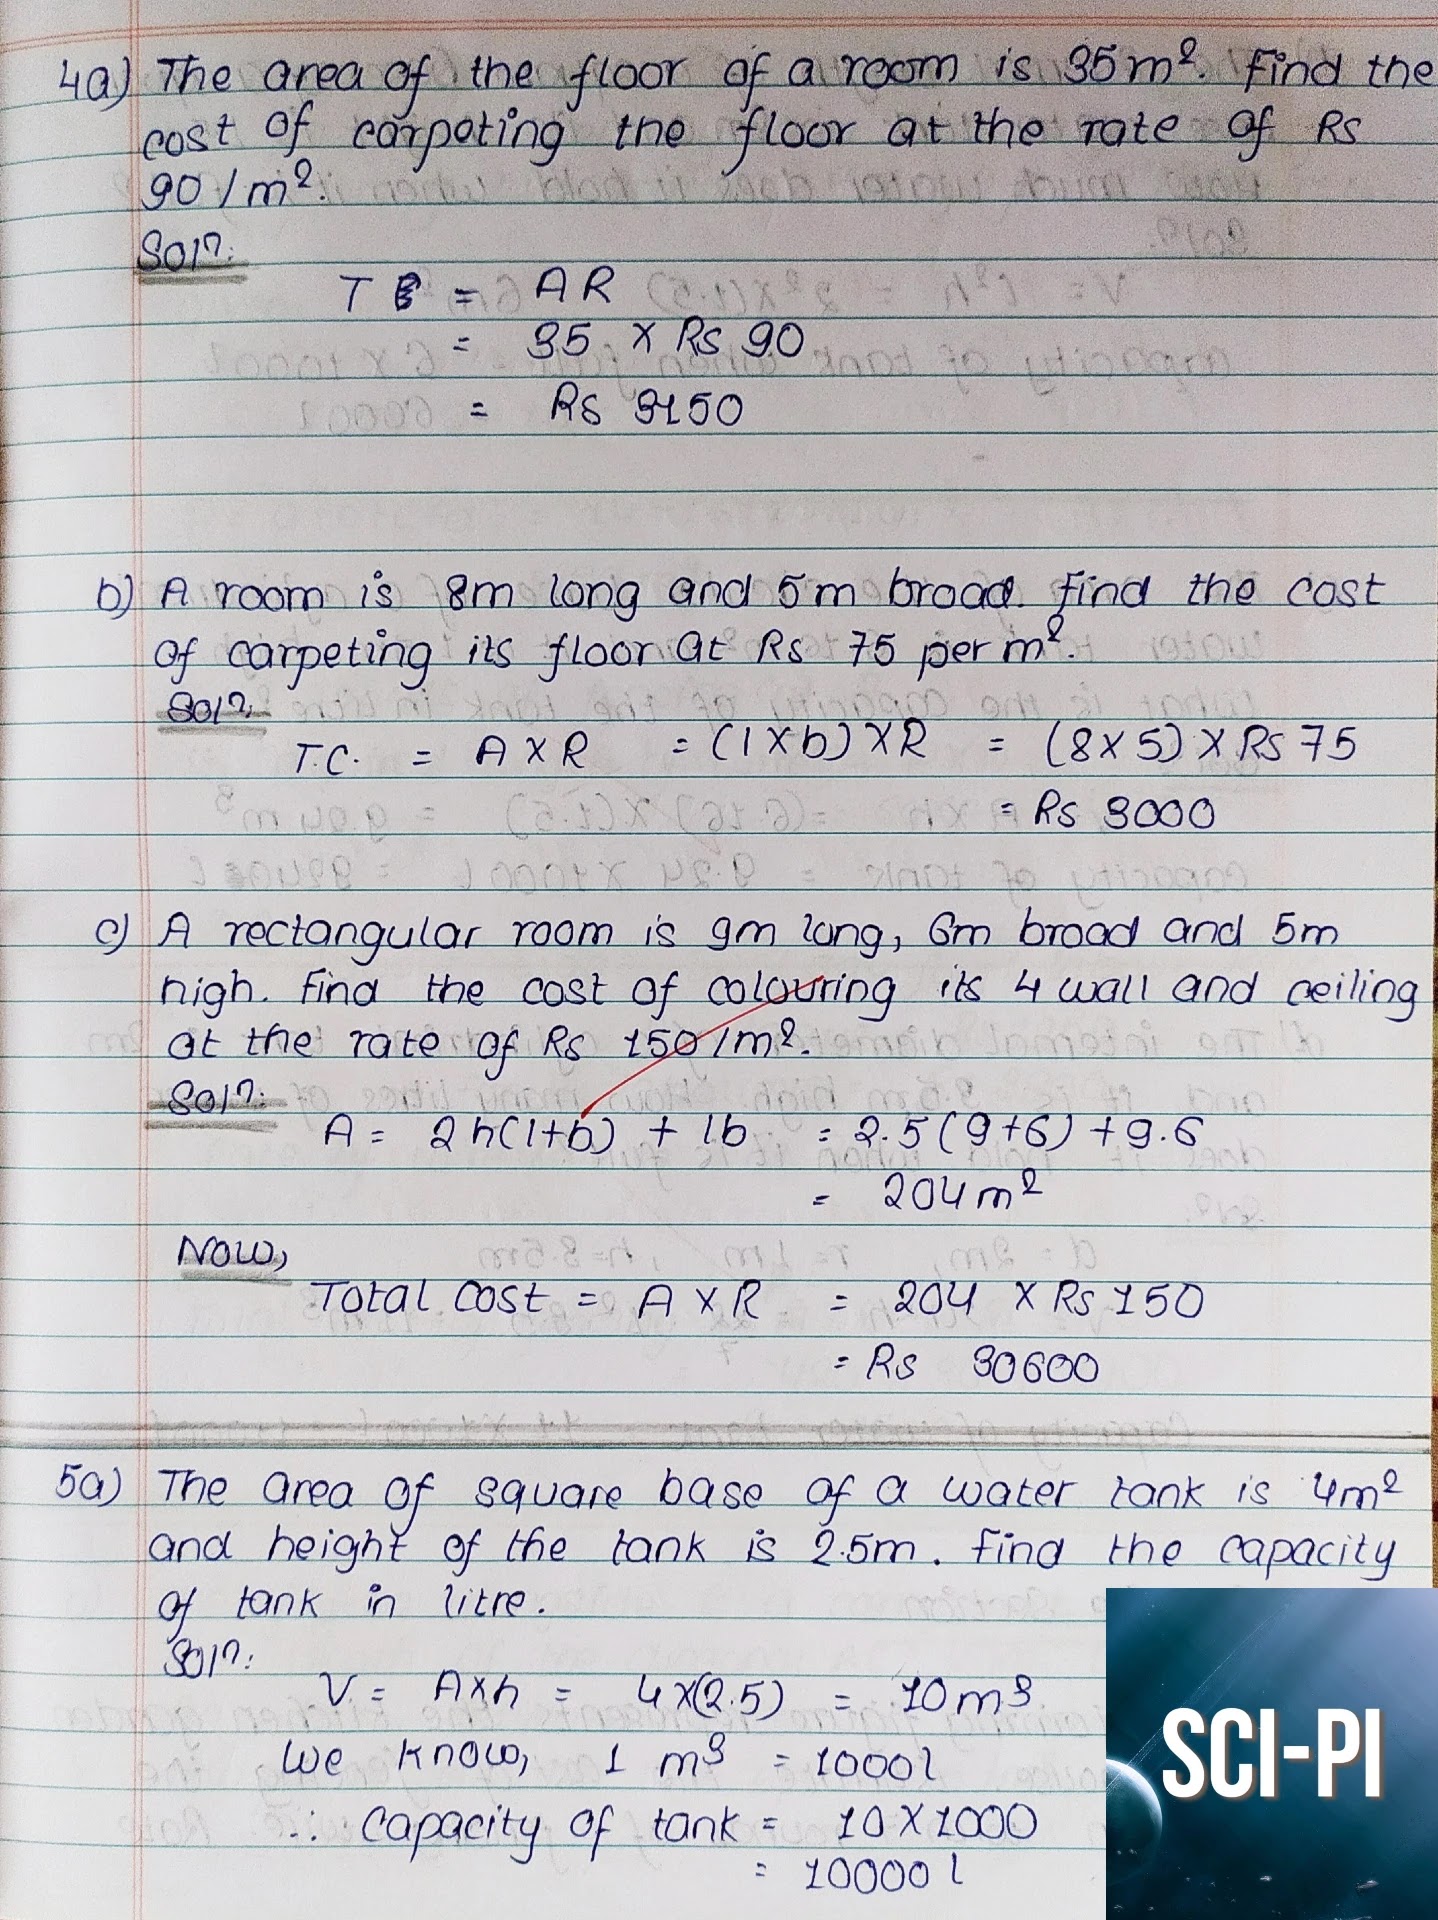 4a) The area of the floor of a room is 35m². Find the
cost of carpeting the floor at the rate of Rs
90/m².
Solⁿ:
T C = AR
= 35 × Rs 90
= Rs 3150
b) A room is 8m long and 5m broad. Find the cost
of carpeting its floor at Rs 75 per m².
Solⁿ:
T.C. = A × R = (l×b)×R = (8×5)×Rs 75
= Rs 3000
c) A rectangular room is 9m long, 6m broad and 5m
high. Find the cost of colouring its 4 wall and ceiling
at the rate of Rs 150/m².
Solⁿ:
A = 2h(l+b) + lb = 2.5(9+6)+9.6
= 204m²
Now,
Total Cost = A × R = 204 × Rs 150
= Rs 30600
5a) The area of square base of a water tank is 4m²
and height of the tank is 2.5m. Find the capacity
of tank in litre.
Solⁿ:
V = A×h = 4×(2.5) = 10m³
We know, 1 m³ = 1000l
∴ Capacity of tank = 10×1000
= 10000 l
SCI-PI